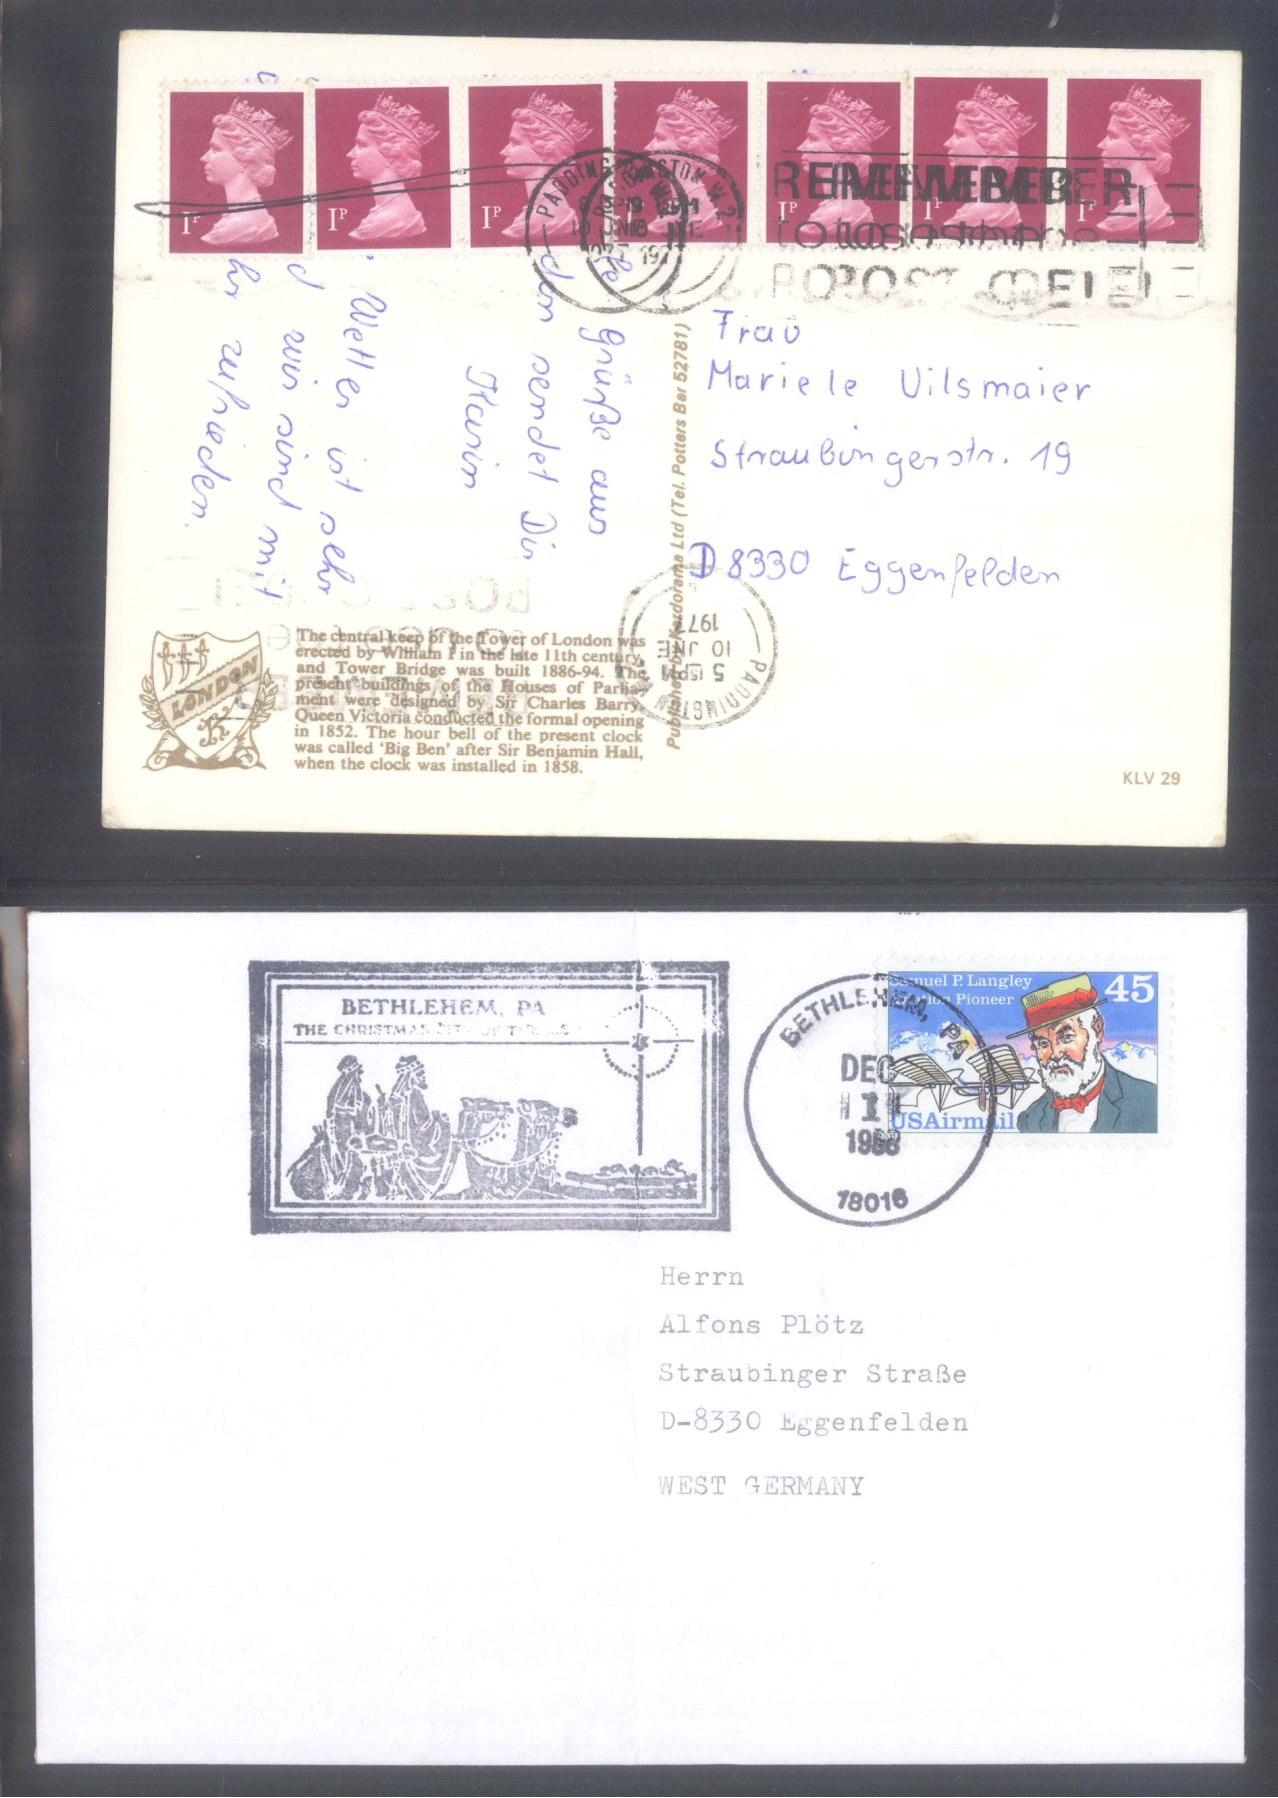 1P 1P 1P 1P 1P 1P 1P
PADDINGTON
REMEMBER
to use the
POST CODE
Grüße aus
don sendet Dir
Karin
Wetter ist sehr
d wir sind mit
hr zufrieden.
Published by Kardorama Ltd (Tel. Potters Bar 52781)
Frau
Mariele Vilsmaier
Straubingerstr. 19
D 8330 Eggenfelden
PADDINGTON
5 15PM
10 JNE
1977
LONDON
K
The central keep of the Tower of London was
erected by William I in the late 11th century,
and Tower Bridge was built 1886-94. The
present buildings of the Houses of Parlia-
ment were designed by Sir Charles Barry.
Queen Victoria conducted the formal opening
in 1852. The hour bell of the present clock
was called 'Big Ben' after Sir Benjamin Hall,
when the clock was installed in 1858.
KLV 29
BETHLEHEM, PA
THE CHRISTMAS CITY OF THE U.S
BETHLEHEM, PA
DEC
1
1988
18016
Samuel P. Langley
Aviation Pioneer
45
USAirmail
Herrn
Alfons Plötz
Straubinger Straße
D-8330 Eggenfelden
WEST GERMANY